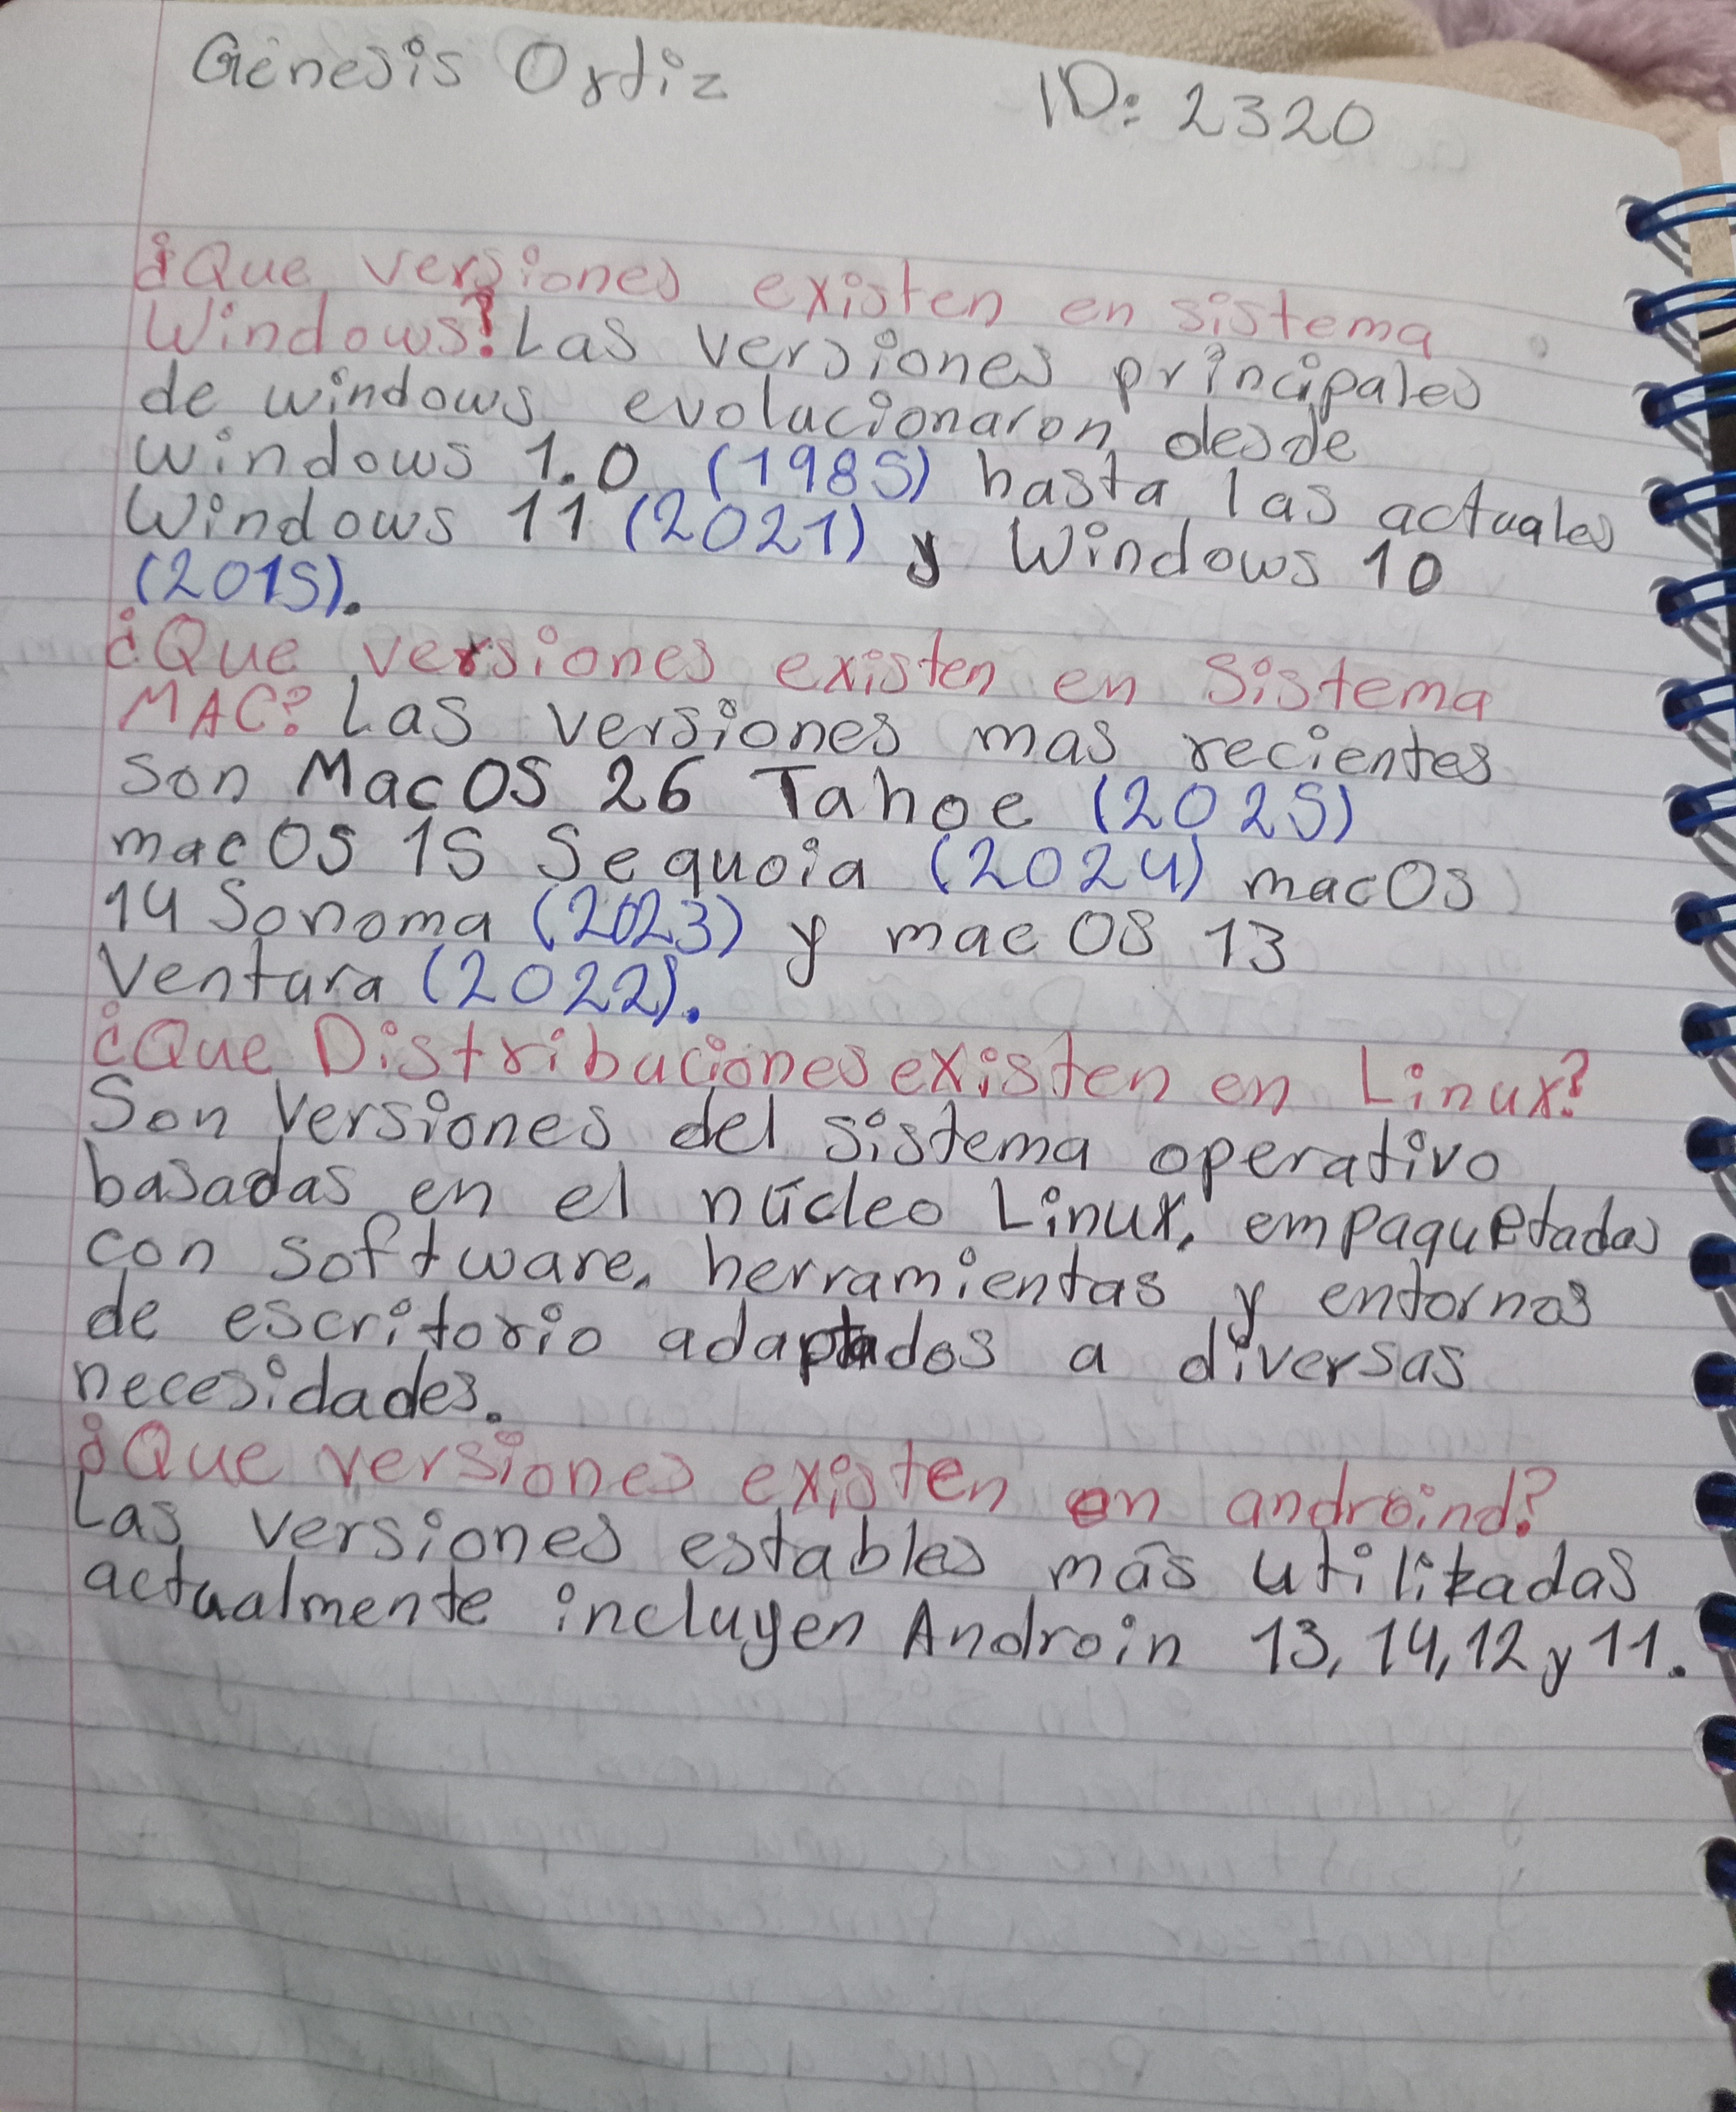 Génesis Ortiz ID: 2320
¿Que versiones existen en sistema
Windows? Las versiones principales
de windows evolucionaron desde
windows 1.0 (1985) hasta las actuales
Windows 11 (2021) y Windows 10
(2015).
¿Que versiones existen en Sistema
MAC? Las versiones mas recientes
son MacOS 26 Tahoe (2025)
macOS 15 Sequoia (2024) macOS
14 Sonoma (2023) y macOS 13
Ventura (2022).
¿Que Distribuciones existen en Linux?
Son versiones del sistema operativo
basadas en el núcleo Linux, empaquetadas
con software, herramientas y entornos
de escritorio adaptados a diversas
necesidades.
¿Que versiones existen en androind?
Las versiones estables más utilizadas
actualmente incluyen Androin 13, 14, 12 y 11.